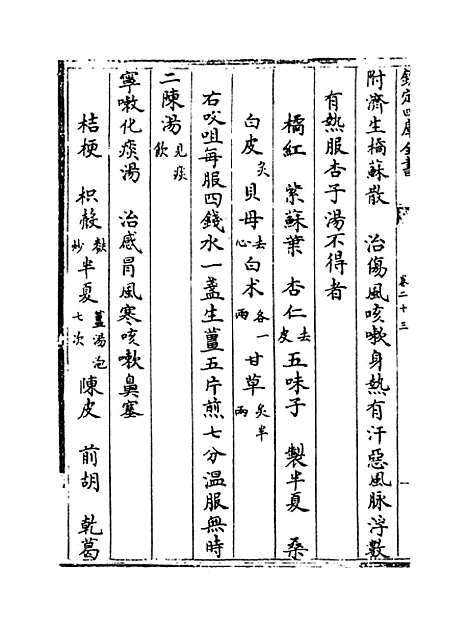 欽定四庫全書
卷二十三
附濟生橘蘇散 治傷風咳嗽身熱有汗惡風脉浮數
有熱服杏子湯不得者
橘紅 紫蘇葉 杏仁去皮 五味子 製半夏 桑
白皮炙 貝母去心 白术各一兩 甘草炙半兩
右㕮咀每服四錢水一盞生薑五片煎七分溫服無時
二陳湯見痰飲
寧嗽化痰湯 治感冒風寒咳嗽鼻塞
桔梗 枳殼麩炒 半夏薑湯泡七次 陳皮 前胡 乾葛